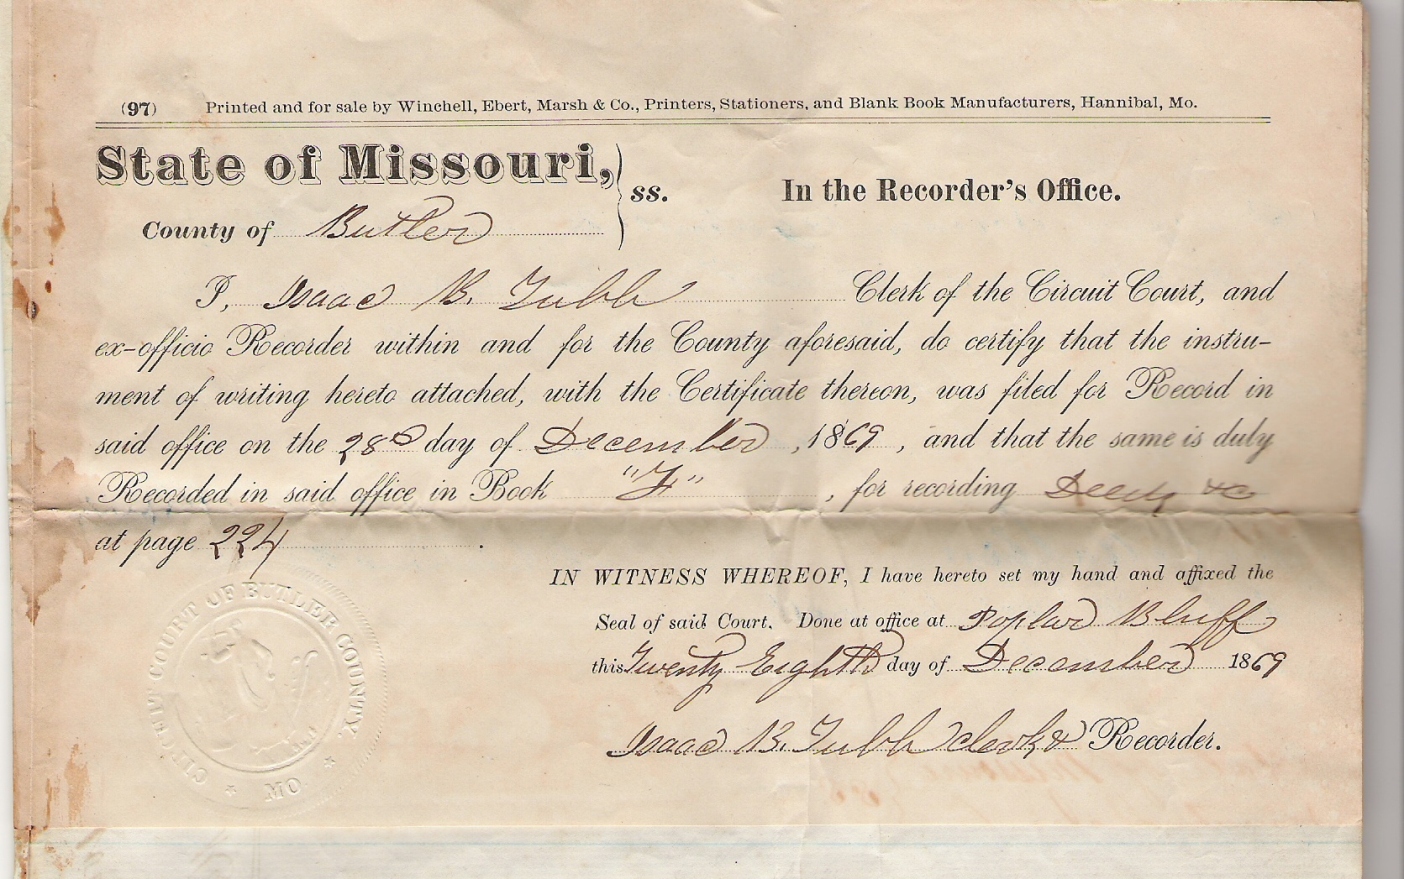 (97) Printed and for sale by Winchell, Ebert, Marsh & Co., Printers, Stationers, and Blank Book Manufacturers, Hannibal, Mo.
State of Missouri, } ss. In the Recorder's Office.
County of Butler
I, Isaac B. Tubb Clerk of the Circuit Court, and
ex-officio Recorder within and for the County aforesaid, do certify that the instru-
ment of writing hereto attached, with the Certificate thereon, was filed for Record in
said office on the 28th day of December, 1869, and that the same is duly
Recorded in said office in Book , for recording Deeds &c
at page 224.
IN WITNESS WHEREOF, I have hereto set my hand and affixed the
Seal of said Court. Done at office at Poplar Bluff
this Twenty Eighth day of December 1869
Isaac B. Tubb clerk & Recorder.
CIRCUIT COURT OF BUTLER COUNTY.
* MO. *